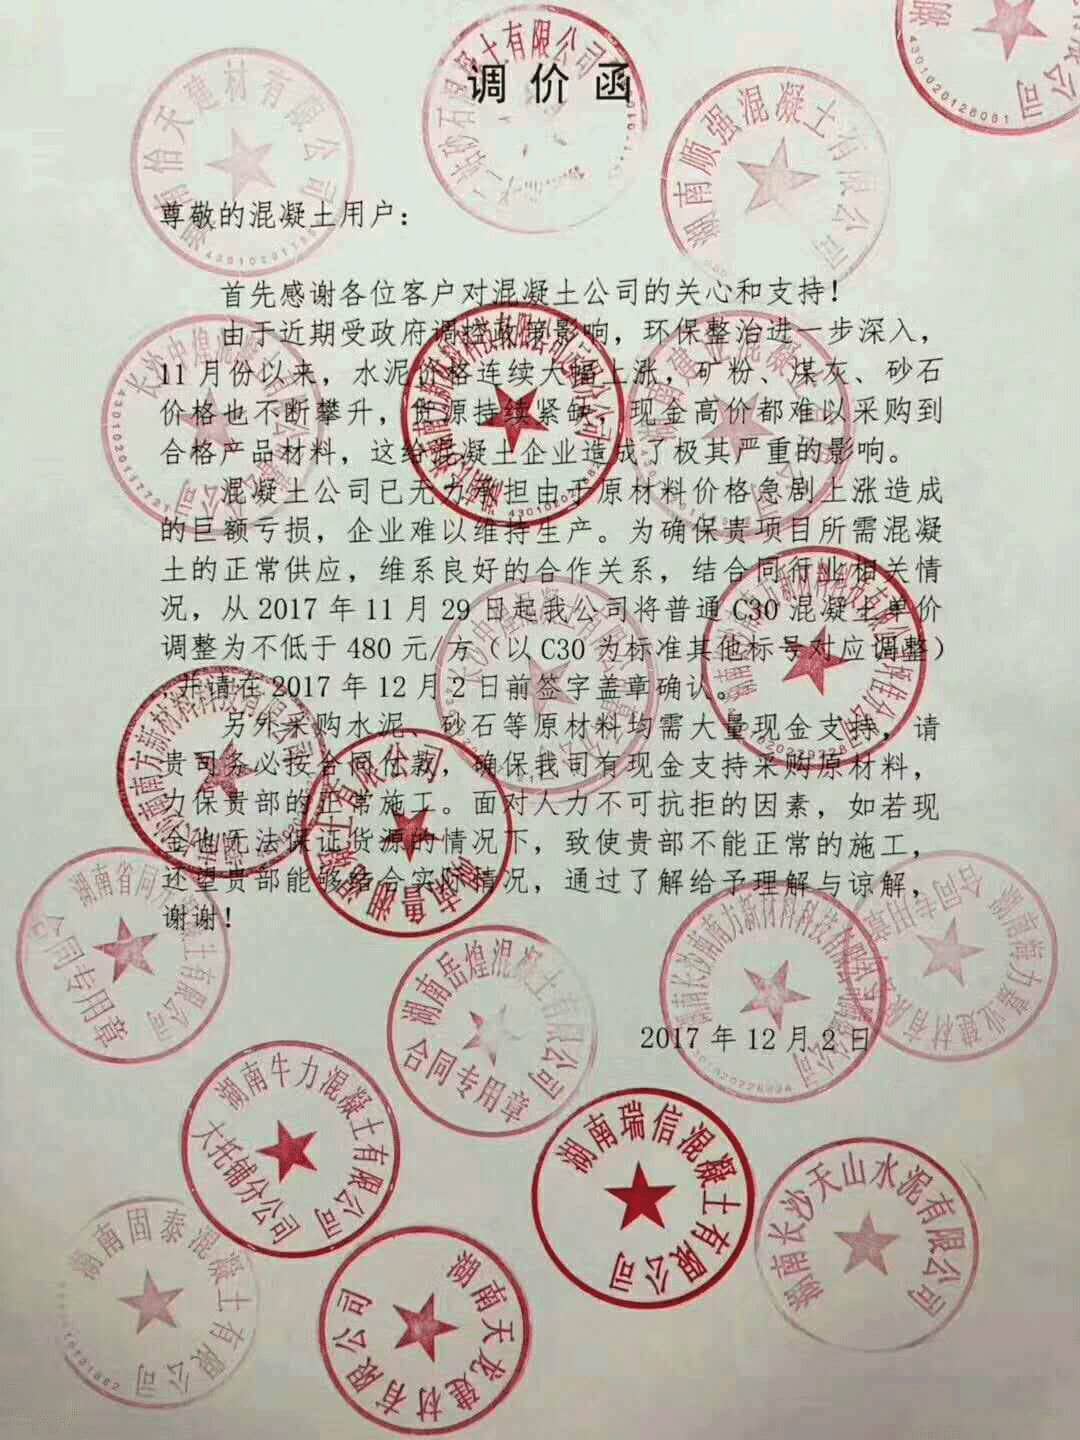 调价函
尊敬的混凝土用户：
首先感谢各位客户对混凝土公司的关心和支持！
由于近期受政府调控政策影响，环保整治进一步深入，
11月份以来，水泥价格连续大幅上涨，矿粉、煤灰、砂石
价格也不断攀升，货源持续紧缺，现金高价都难以采购到
合格产品材料，这给混凝土企业造成了极其严重的影响。
混凝土公司已无力承担由于原材料价格急剧上涨造成
的巨额亏损，企业难以维持生产。为确保贵项目所需混凝
土的正常供应，维系良好的合作关系，结合同行业相关情
况，从2017年11月29日起我公司将普通C30混凝土单价
调整为不低于480元/方（以C30为标准其他标号对应调整）
，并请在2017年12月2日前签字盖章确认。
另外采购水泥、砂石等原材料均需大量现金支持，请
贵司务必按合同付款，确保我司有现金支持采购原材料，
力保贵部的正常施工。面对人力不可抗拒的因素，如若现
金也无法保证货源的情况下，致使贵部不能正常的施工，
还望贵部能够结合实际情况，通过了解给予理解与谅解，
谢谢！
2017年12月2日
湖南顺强混凝土有限公司
湖南岳煌混凝土有限公司
合同专用章
湖南牛力混凝土有限公司
大托铺分公司
湖南瑞信混凝土有限公司
湖南长沙天山水泥有限公司
湖南固泰混凝土有限公司
湖南天龙建材有限公司